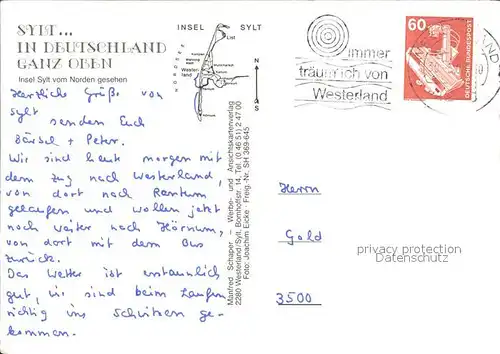 SYLT...
IN DEUTSCHLAND
GANZ OBEN
Insel Sylt vom Norden gesehen
INSEL SYLT
NORDSEE
List
Westerland
immer
träum ich von
Westerland
60
DEUTSCHE BUNDESPOST
Herzliche Grüße von
Sylt senden Euch
Bärbel + Peter.
Wir sind heute morgen mit
dem Zug nach Westerland,
von dort nach Rantum
gelaufen und wollen jetzt
noch weiter nach Hörnum,
von dort mit dem Bus
zurück.
Das Wetter ist erstaunlich
gut, wir sind beim Laufen
richtig ins schwitzen ge-
kommen.
Manfred Schaper · Werbe- und Ansichtskartenverlag
2280 Westerland/Sylt, Bomhoffstr. 14, Tel. (0 46 51) 2 47 00
Foto: Joachim Eicke · Freig.-Nr. SH 369-645
Herrn
Gold
3500
privacy protection
Datenschutz